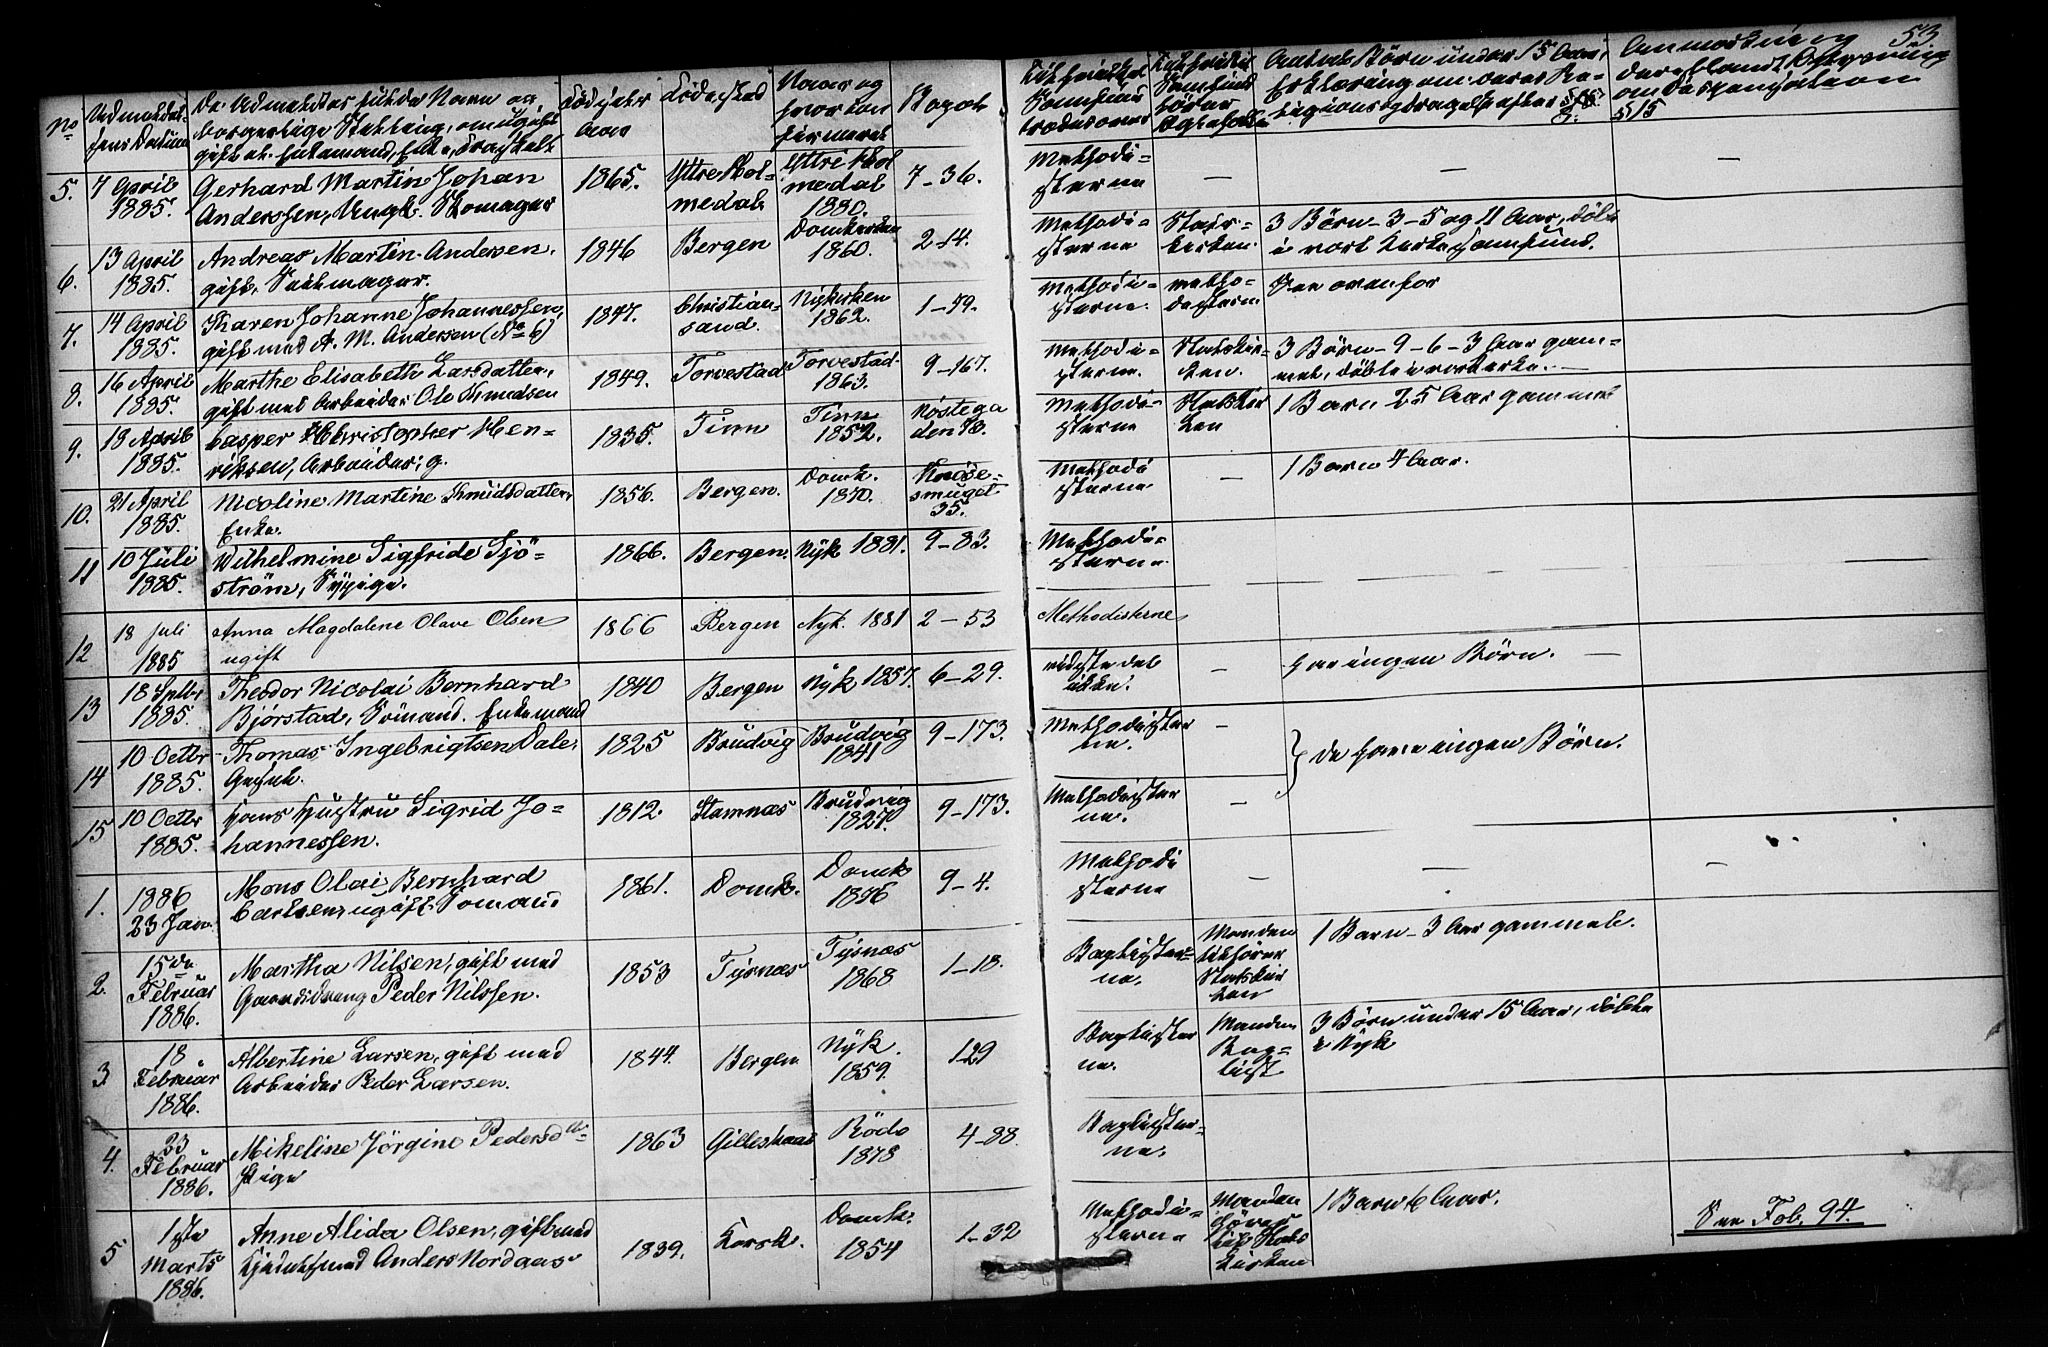 53
No
Udmeldel-
sens Datum
De Udmeldtes fulde Navn og
borgerlige Stilling, om ugift
gift el. Enkemand, Enke, Fraskilt
Födsels
Aar
Födested
Naar og
hvor kon
firmeret
Bopæl
Antal Börn under 15 Aar,
Erklæring om deres Re-
ligionsopdragelse efter
Anmærkning
deriblandt Oplysning
om Dispensation
§15
5.
7 April
1885.
Gerhard Martin Johan
Anderssen, Ungk. Skomager
1865.
Yttre Hol-
medal
Yttre Hol
medal
1880.
7-36.
Methodi-
sterne
—
—
—
6.
13 April
1885.
Andreas Martin Andersen,
gift, Seilmager.
1846
Bergen
Domkirken
1860.
2-14.
Methodi-
sterne
Stats-
kirken.
3 Börn - 3-5 og 11 Aar, döbt
i vort Kirkesamfund.
7.
14 April
1885.
Tharen Johanne Johannessen,
gift med A. M. Andersen (No 6)
1847.
Christian-
sand.
Nykirken
1862.
1-79.
Methodi-
sterne.
metho-
disterne
See ovenfor
8.
16 April
1885.
Marthe Elisabeth Larsdatter,
gift med Arbeider Ole Knudsen
1849.
Torvestad
Torvestad
1863.
9-167.
Methodi-
sterne.
Statskir-
ken.
3 Börn - 9-6-3 Aar gam-
mel, döbte i vor Kirke. —
9.
19 April
1885.
Casper Christopher Hen-
riksen, Arbeider, g.
1835.
Tinn
Tinn
1852.
Nöstega
den 73.
Methodi-
sterne
Statskir
ken
1 Barn 25 Aar gammel
10.
21 April
1885.
Nicoline Martine Knudsdatter,
Enke.
1856.
Bergen.
Domk.
1870.
Knöse-
smuget
35.
Methodi
sterne
—
1 Barn 7 Aar.
11
10 Juli
1885.
Wilhelmine Sigfride Sjö-
ström, Sypige.
1866.
Bergen.
Nÿk 1881.
9-83.
Methodi-
sterne.
12
18 Juli
1885
Anna Magdalene Olave Olsen
ugift
1866
Bergen
Nyk. 1881
2-53
Methodisterne
13
18 Sptbr
1885.
Theodor Nicolai Bernhard
Bjørstad, Sömand. Enkemand
1840
Bergen
Nÿk 1857.
6-29.
vidste det
ikke.
—
har ingen Börn. —
14
10 Octbr
1885.
Thomas Ingebrigtsen Dale,
1825
Brudvig
Brudvig
1841
9-173.
Methodister
ne.
—
} De have ingen Börn.
15
10 Octbr
1885.
hans Hustru Sigrid Jo-
hannessen.
1812.
Stamnæs
Brudvig
1827.
9-173.
Methodister
ne.
—
1.
1886
23 Jan.
Mons Olai Bernhard
Carlsen, ugift Sömand
1861.
Domk.
Domk
1876
9-4.
Methodi
sterne
—
—
—
2.
15de
Februar
1886.
Martha Nilsen, gift med
Gaardsdreng Peder Nilssen.
1853
Tysnæs
Tysnæs
1868
1-18.
Baptister-
ne.
Manden
tilhører
Statskir
ken
1 Barn - 3 Aar gammel.
3
18
Februar
1886.
Albertine Larsen, gift med
Arbeider Peder Larsen.
1844.
Bergen
Nÿk.
1859.
129
Baptister
ne.
Manden
Bap-
tist
3 Börn under 15 Aar, döbte
i Nyk
4.
23
Februar
1886.
Mikeline Jörgine Pedersdtr
Pige
1863
Gilleskaal
Rödö
1878
4-88.
Baptister-
ne.
5
1ste
Marts
1886.
Anne Alida Olsen, gift med
Anders Nordaas
1839.
Korsk.
Domk.
1854
1-32
Methodi-
sterne
Manden
hörer
til Stats
kirken
1 Barn 6 Aar.
See Fol. 94.